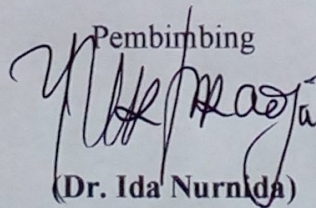 Pembimbing
(Dr. Ida Nurnida)